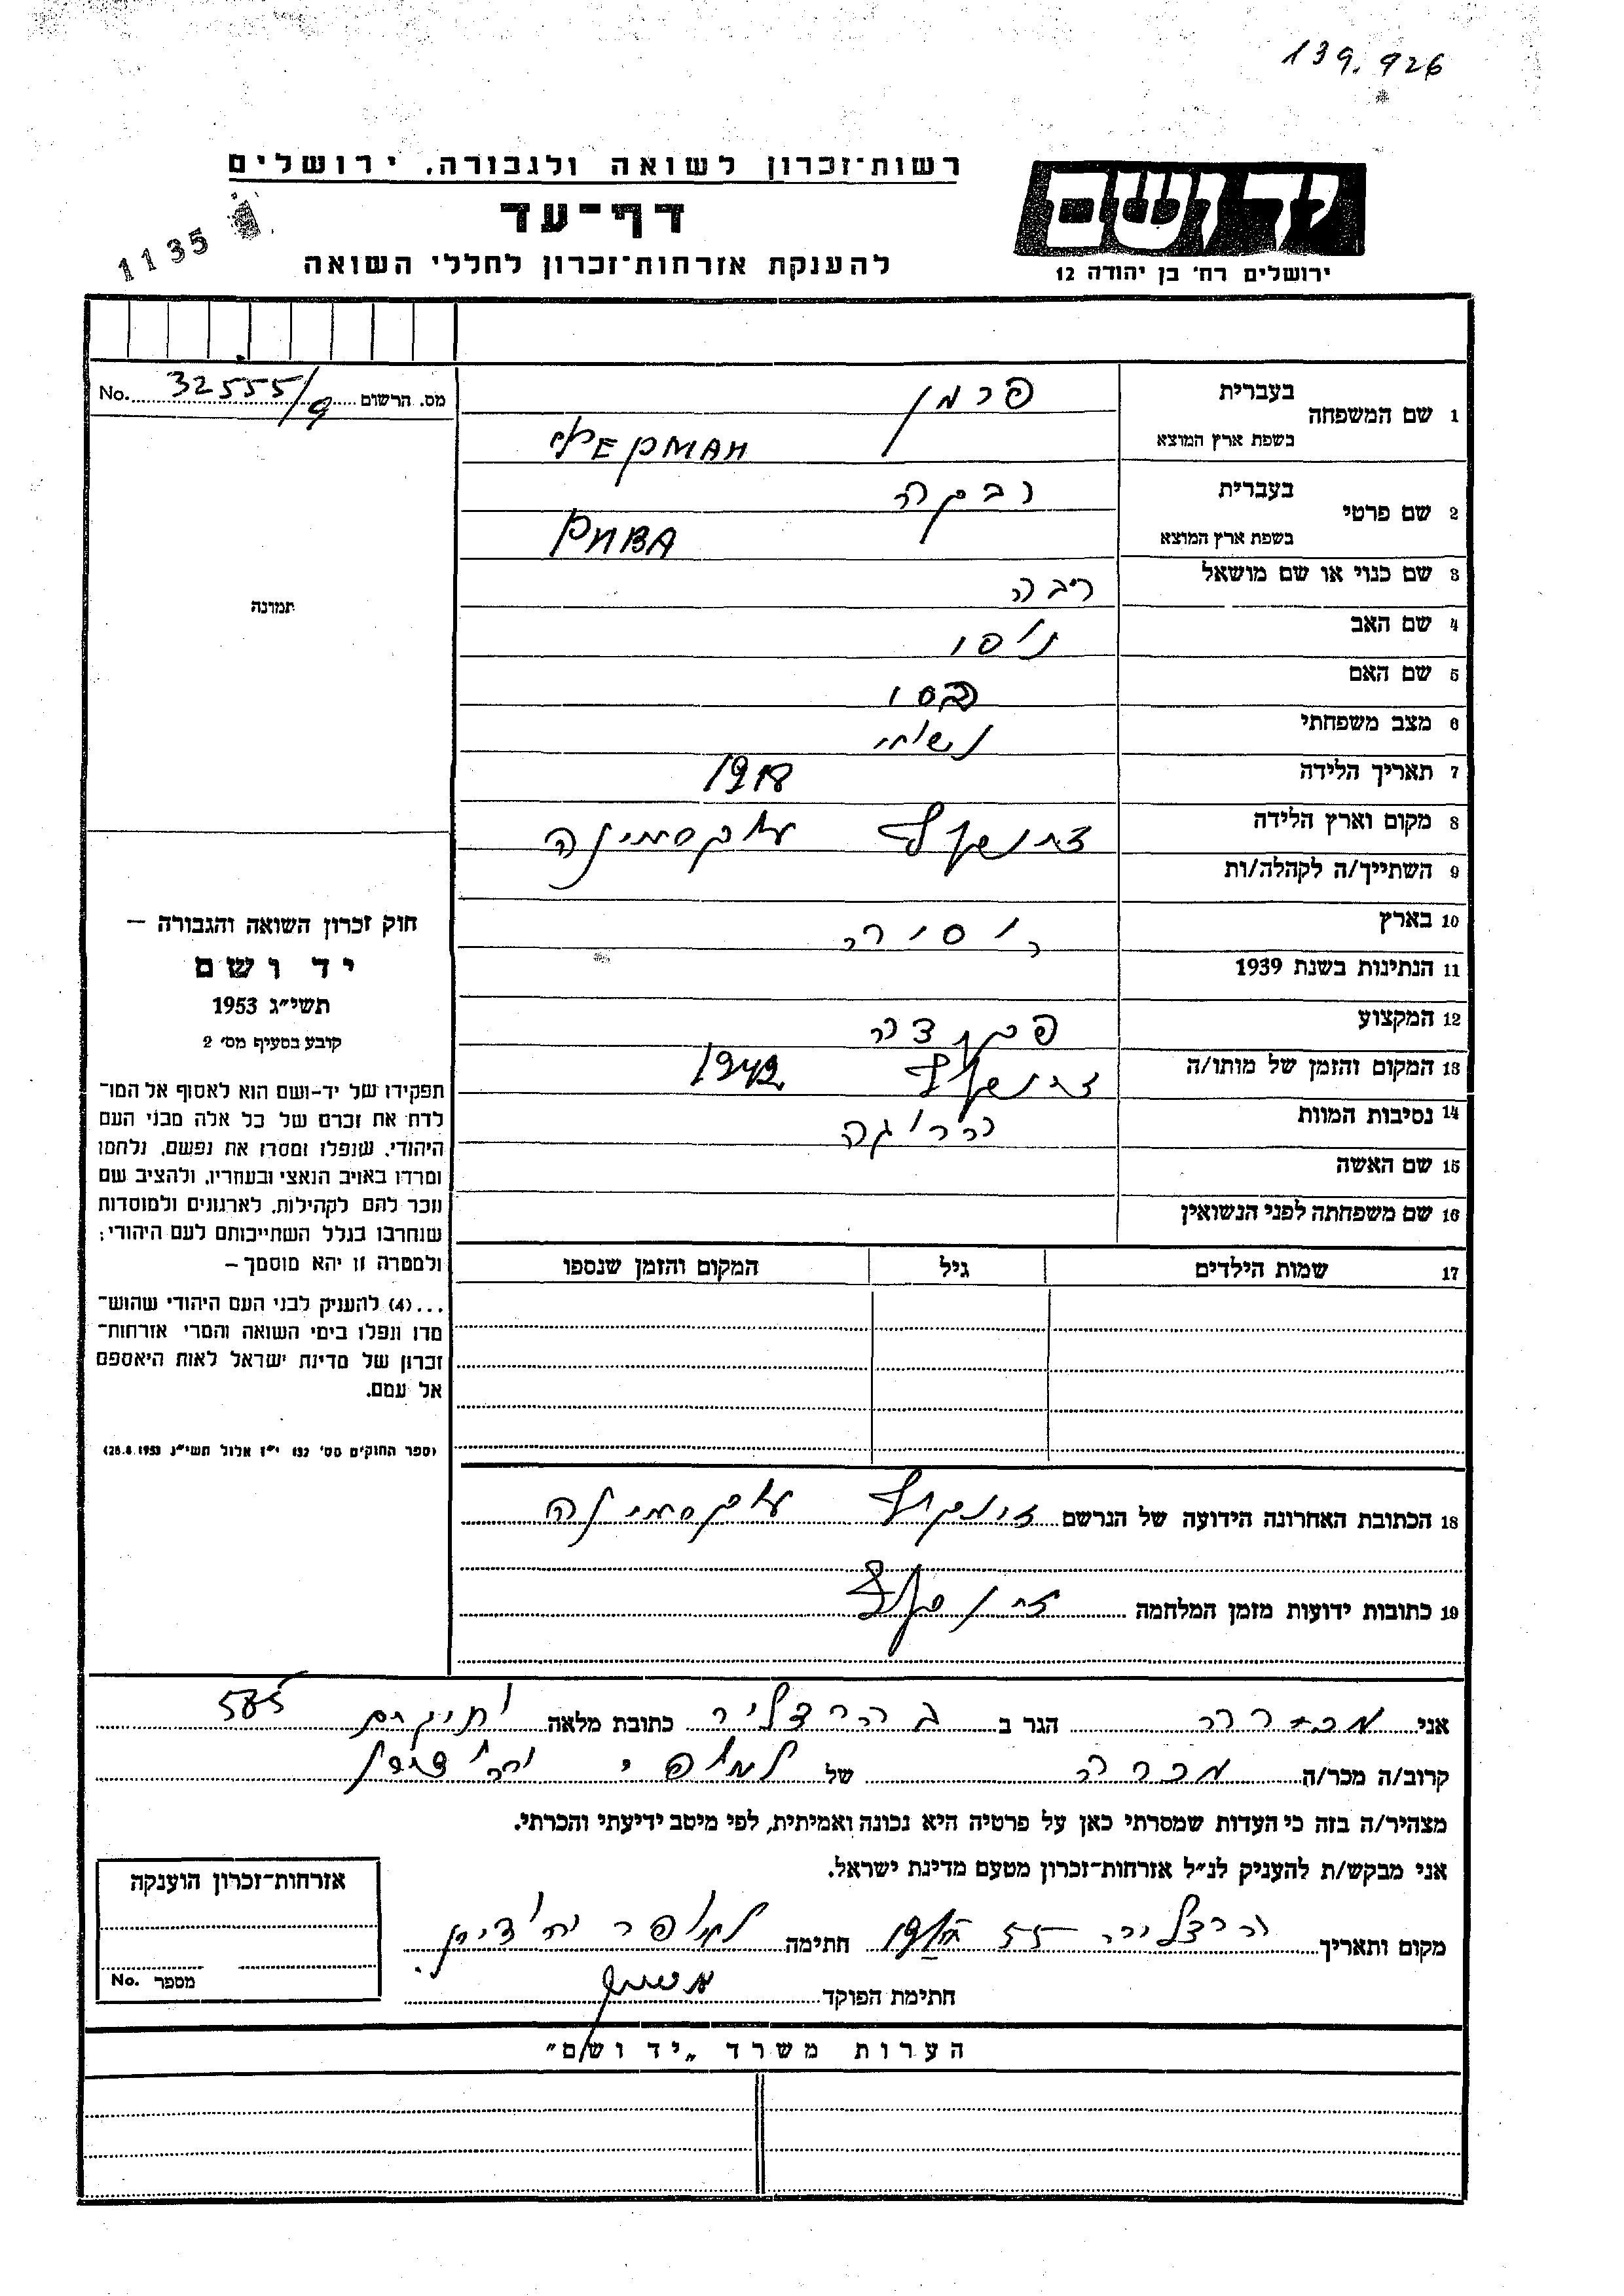 139.926
רשות־זכרון לשואה ולגבורה, ירושלים
דף־עד
להענקת אזרחות־זכרון לחללי השואה
יד ושם
ירושלים רח' בן יהודה 12
1135
מס. הרשום 32555/9 No.
1 שם המשפחה בעברית פרמן
בשפת ארץ המוצא ФЕРМАН
2 שם פרטי בעברית רבקה
בשפת ארץ המוצא РИВА
3 שם כנוי או שם מושאל ריבה
4 שם האב
5 שם האם
6 מצב משפחתי
7 תאריך הלידה 1918
8 מקום וארץ הלידה
9 השתייך/ה לקהלה/ות
10 בארץ
11 הנתינות בשנת 1939
12 המקצוע
13 המקום והזמן של מותו/ה 1942
14 נסיבות המוות
15 שם האשה
16 שם משפחתה לפני הנשואין
17 שמות הילדים גיל המקום והזמן שנספו
18 הכתובת האחרונה הידועה של הנרשם
19 כתובות ידועות מזמן המלחמה
תמונה
חוק זכרון השואה והגבורה —
יד ושם
תשי״ג 1953
קובע בסעיף מס' 2
תפקידו של יד-ושם הוא לאסוף אל המו־
לדת את זכרם של כל אלה מבני העם
היהודי, שנפלו ומסרו את נפשם, נלחמו
ומרדו באויב הנאצי ובעוזריו, ולהציב שם
וזכר להם לקהילות, לארגונים ולמוסדות
שנחרבו בגלל השתייכותם לעם היהודי;
ולמטרה זו יהא מוסמך —
...(4) להעניק לבני העם היהודי שהוש־
מדו ונפלו בימי השואה והמרי אזרחות־
זכרון של מדינת ישראל לאות היאספם
אל עמם.
(ספר החוקים מס' 132 י״ז אלול תשי״ג 28.8.1953)
אני הגר ב בהרצליה כתובת מלאה 585
קרוב/ה מכר/ה מכרה של
מצהיר/ה בזה כי העדות שמסרתי כאן על פרטיה היא נכונה ואמיתית, לפי מיטב ידיעתי והכרתי.
אני מבקש/ת להעניק לנ״ל אזרחות־זכרון מטעם מדינת ישראל.
מקום ותאריך הרצליה חתימה
חתימת הפוקד
אזרחות־זכרון הוענקה
מספר No.
הערות משרד „יד ושם״